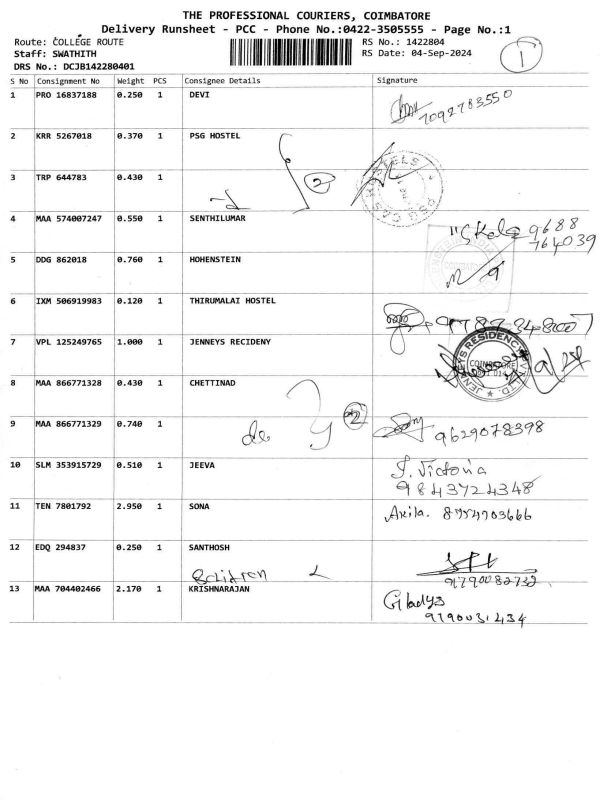 THE PROFESSIONAL COURIERS, COIMBATORE
Delivery Runsheet - PCC - Phone No.:0422-3505555 - Page No.:1
Route: COLLEGE ROUTE RS No.: 1422804 1
Staff: SWATHITH RS Date: 04-Sep-2024
DRS No.: DCJB142280401
S No Consignment No Weight PCS Consignee Details Signature
1 PRO 16837188 0.250 1 DEVI 7092783550
2 KRR 5267018 0.370 1 PSG HOSTEL
3 TRP 644783 0.430 1 2
4 MAA 574007247 0.550 1 SENTHILUMAR 9688
764039
5 DDG 862018 0.760 1 HOHENSTEIN
6 IXM 506919983 0.120 1 THIRUMALAI HOSTEL
7 VPL 125249765 1.000 1 JENNEYS RECIDENY JENNEYS RESIDENCY
8 MAA 866771328 0.430 1 CHETTINAD
9 MAA 866771329 0.740 1 do 2 9629078398
10 SLM 353915729 0.510 1 JEEVA J. Victoria
9843724348
11 TEN 7801792 2.950 1 SONA Akila. 8754703666
12 EDQ 294837 0.250 1 SANTHOSH
9790082732
13 MAA 704402466 2.170 1 KRISHNARAJAN Gladys
9190031434